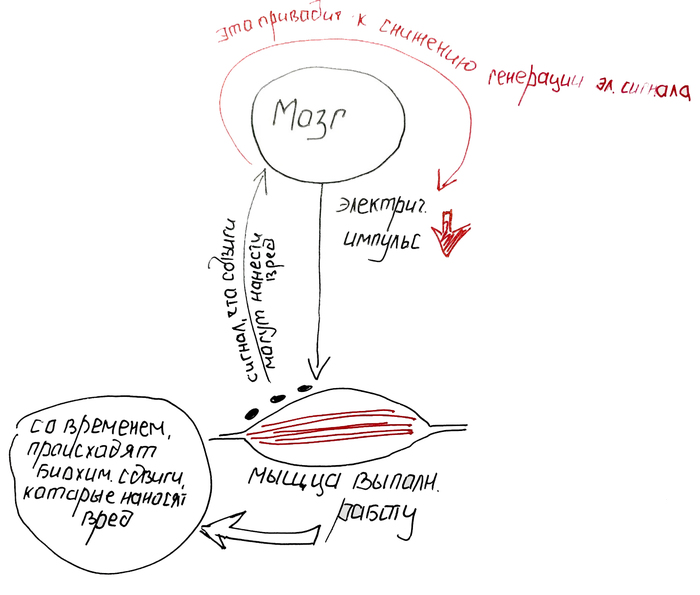 это привадит к снижению генерации эл. сигнала
Мозг
электрич.
импульс
сигнал, что сдвиги
могут нанести
вред
со временем,
происходят
биохим. сдвиги,
которые наносят
вред
мышца выполн.
работу